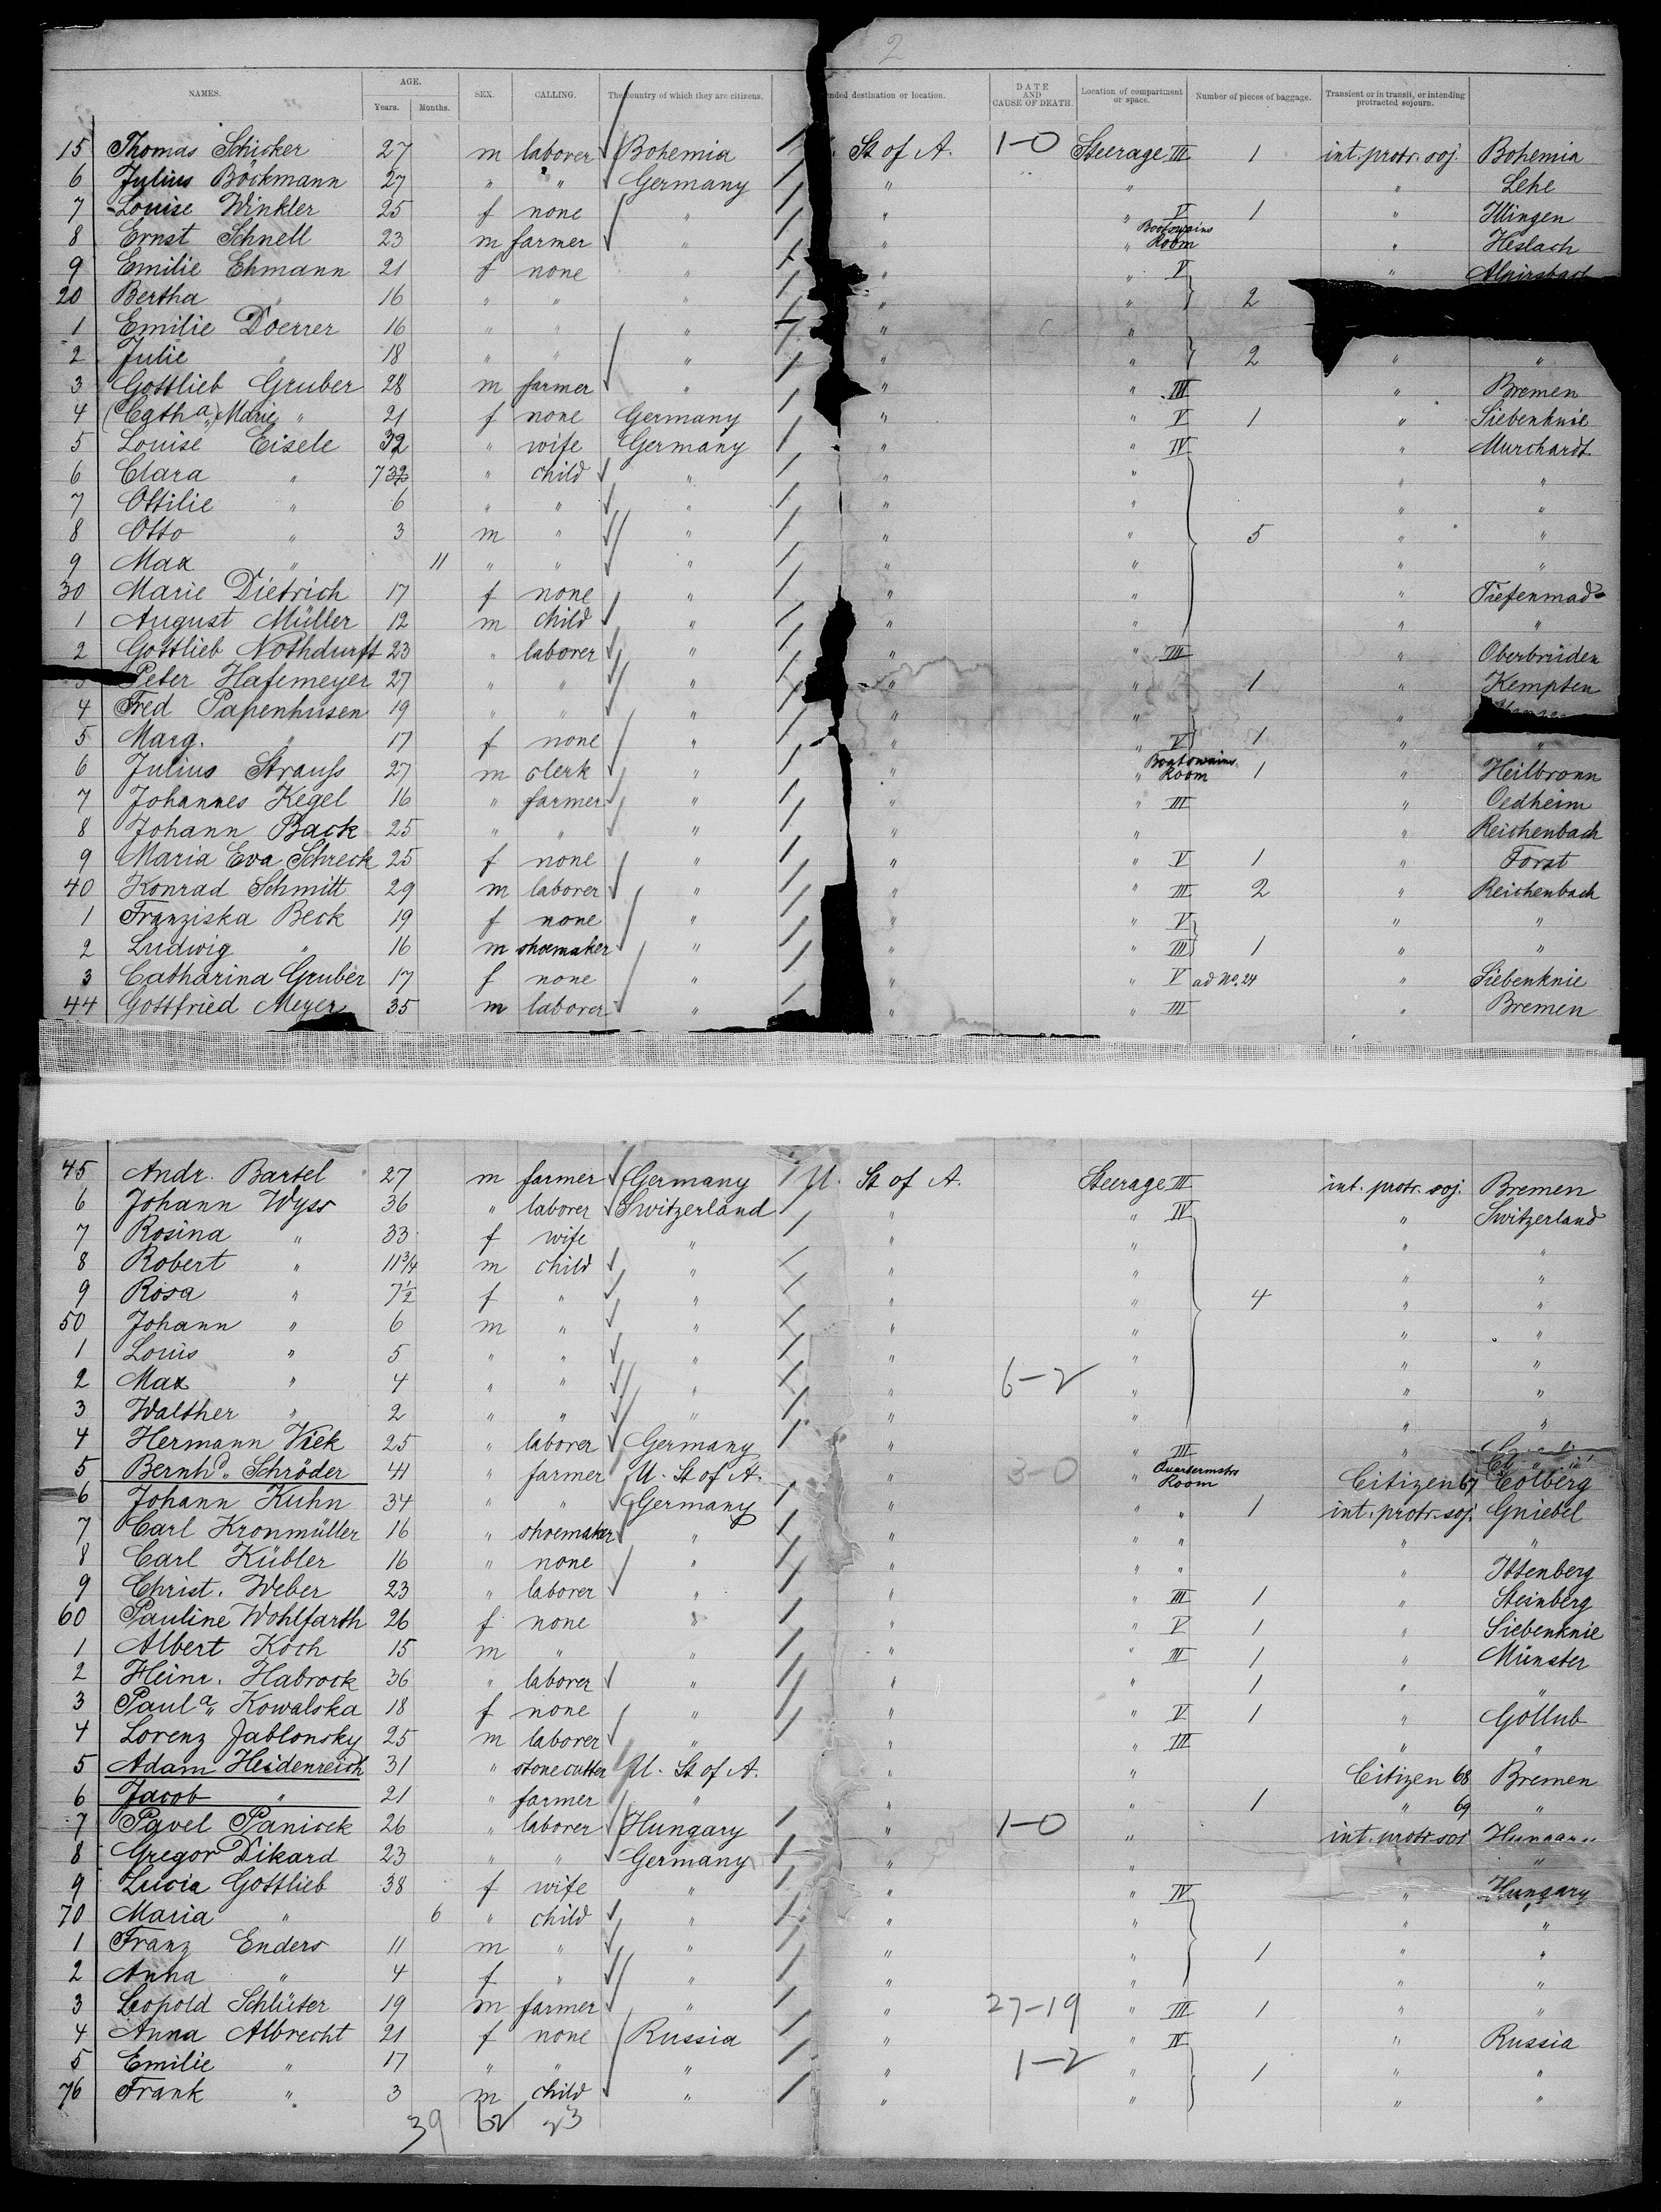 2
NAMES. AGE. Years. Months. SEX. CALLING. The country of which they are citizens. nded destination or location. DATE AND CAUSE OF DEATH. Location of compartment or space. Number of pieces of baggage. Transient or in transit, or intending protracted sojourn.
15 Thomas Schicker 27 m laborer Bohemia St of A. 1-0 Steerage III 1 int. protr. soj. Bohemia
6 Julius Böckmann 27 " " Germany " " " Lehe
7 Louise Winkler 25 f none " " " V 1 " Illingen
8 Ernst Schnell 23 m farmer " " " Bootswains Room " Heslach
9 Emilie Ehmann 21 f none " " " V " Alpirsbach
20 Bertha " 16 " " " " " 2
1 Emilie Doerrer 16 " " " " "
2 Julie " 18 " " " " " 2 " "
3 Gottlieb Gruber 28 m farmer " " " III " Bremen
4 (Cath a) Marie " 21 f none Germany " " V 1 " Siebenknie
5 Louise Eisele 32 " wife Germany " " IV " Murchardt
6 Clara " 7 32 " child " " " " "
7 Ottilie " 6 " " " " " " "
8 Otto " 3 m " " " " 5 " "
9 Max " 11 " " " " " " "
30 Marie Dietrich 17 f none " " " " Tiefenmad
1 August Müller 12 m child " " " " "
2 Gottlieb Nothdurft 23 " laborer " " " III " Oberbrüden
3 Peter Hafemeyer 27 " " " " " 1 " Kempten
4 Fred Papenhusen 19 " " " " " "
5 Marg. " 17 f none " " " V 1 " "
6 Julius Strauss 27 m clerk " " " Bootswains Room 1 " Heilbronn
7 Johannes Kegel 16 " farmer " " " III " Oedheim
8 Johann Back 25 " " " " " " Reichenbach
9 Maria Eva Schreck 25 f none " " " V 1 " Forst
40 Konrad Schmitt 29 m laborer " " " III 2 " Reichenbach
1 Franziska Beck 19 f none " " " V " "
2 Ludwig " 16 m shoemaker " " " III 1 " "
3 Catharina Gruber 17 f none " " " V ad No. 24 " Siebenknie
44 Gottfried Meyer 35 m laborer " " " III " Bremen
45 Andr. Bartel 27 m farmer Germany U. St of A. Steerage III int. protr. soj. Bremen
6 Johann Wyss 36 " laborer Switzerland " " IV " Switzerland
7 Rosina " 33 f wife " " " " "
8 Robert " 11 3/4 m child " " " " "
9 Rosa " 7 1/2 f " " " " 4 " "
50 Johann " 6 m " " " " " "
1 Louis " 5 " " " " " " "
2 Max " 4 " " " " 6-2 " " "
3 Walther " 2 " " " " " " "
4 Hermann Viek 25 " laborer Germany " " III "
5 Bernhd. Schröder 41 " farmer U. St of A. " 3-0 " Quartermstrs Room Citizen 67 Colberg
6 Johann Kuhn 34 " " Germany " " " 1 int. protr. soj. Gniebel
7 Carl Kronmüller 16 " shoemaker " " " " " "
8 Carl Kübler 16 " none " " " " " Ittenberg
9 Christ. Weber 23 " laborer " " " III 1 " Steinberg
60 Pauline Wohlfarth 26 f none " " " V 1 " Siebenknie
1 Albert Koch 15 m " " " " III 1 " Münster
2 Heinr. Habrock 36 " laborer " " " 1 " "
3 Paula Kowalska 18 f none " " " V 1 " Gollub
4 Lorenz Jablonsky 25 m laborer " " " III " "
5 Adam Heidenreich 31 " stonecutter U. St of A. " " Citizen 68 Bremen
6 Jacob " 21 " farmer " " " 1 " 69 "
7 Pavel Panicek 26 " laborer Hungary " 1-0 " int. protr. soj Hungary
8 Gregor Dikard 23 " " Germany " " " "
9 Lucia Gottlieb 38 f wife " " " IV " Hungary
70 Maria " 6 " child " " " " "
1 Franz Enders 11 m " " " " 1 " "
2 Anna " 4 f " " " " " "
3 Leopold Schlüter 19 m farmer " " 27-19 " III 1 " "
4 Anna Albrecht 21 f none Russia " " IV " Russia
5 Emilie " 17 " " " " 1-2 " 1 " "
76 Frank " 3 m child " " " " "
39 62 23